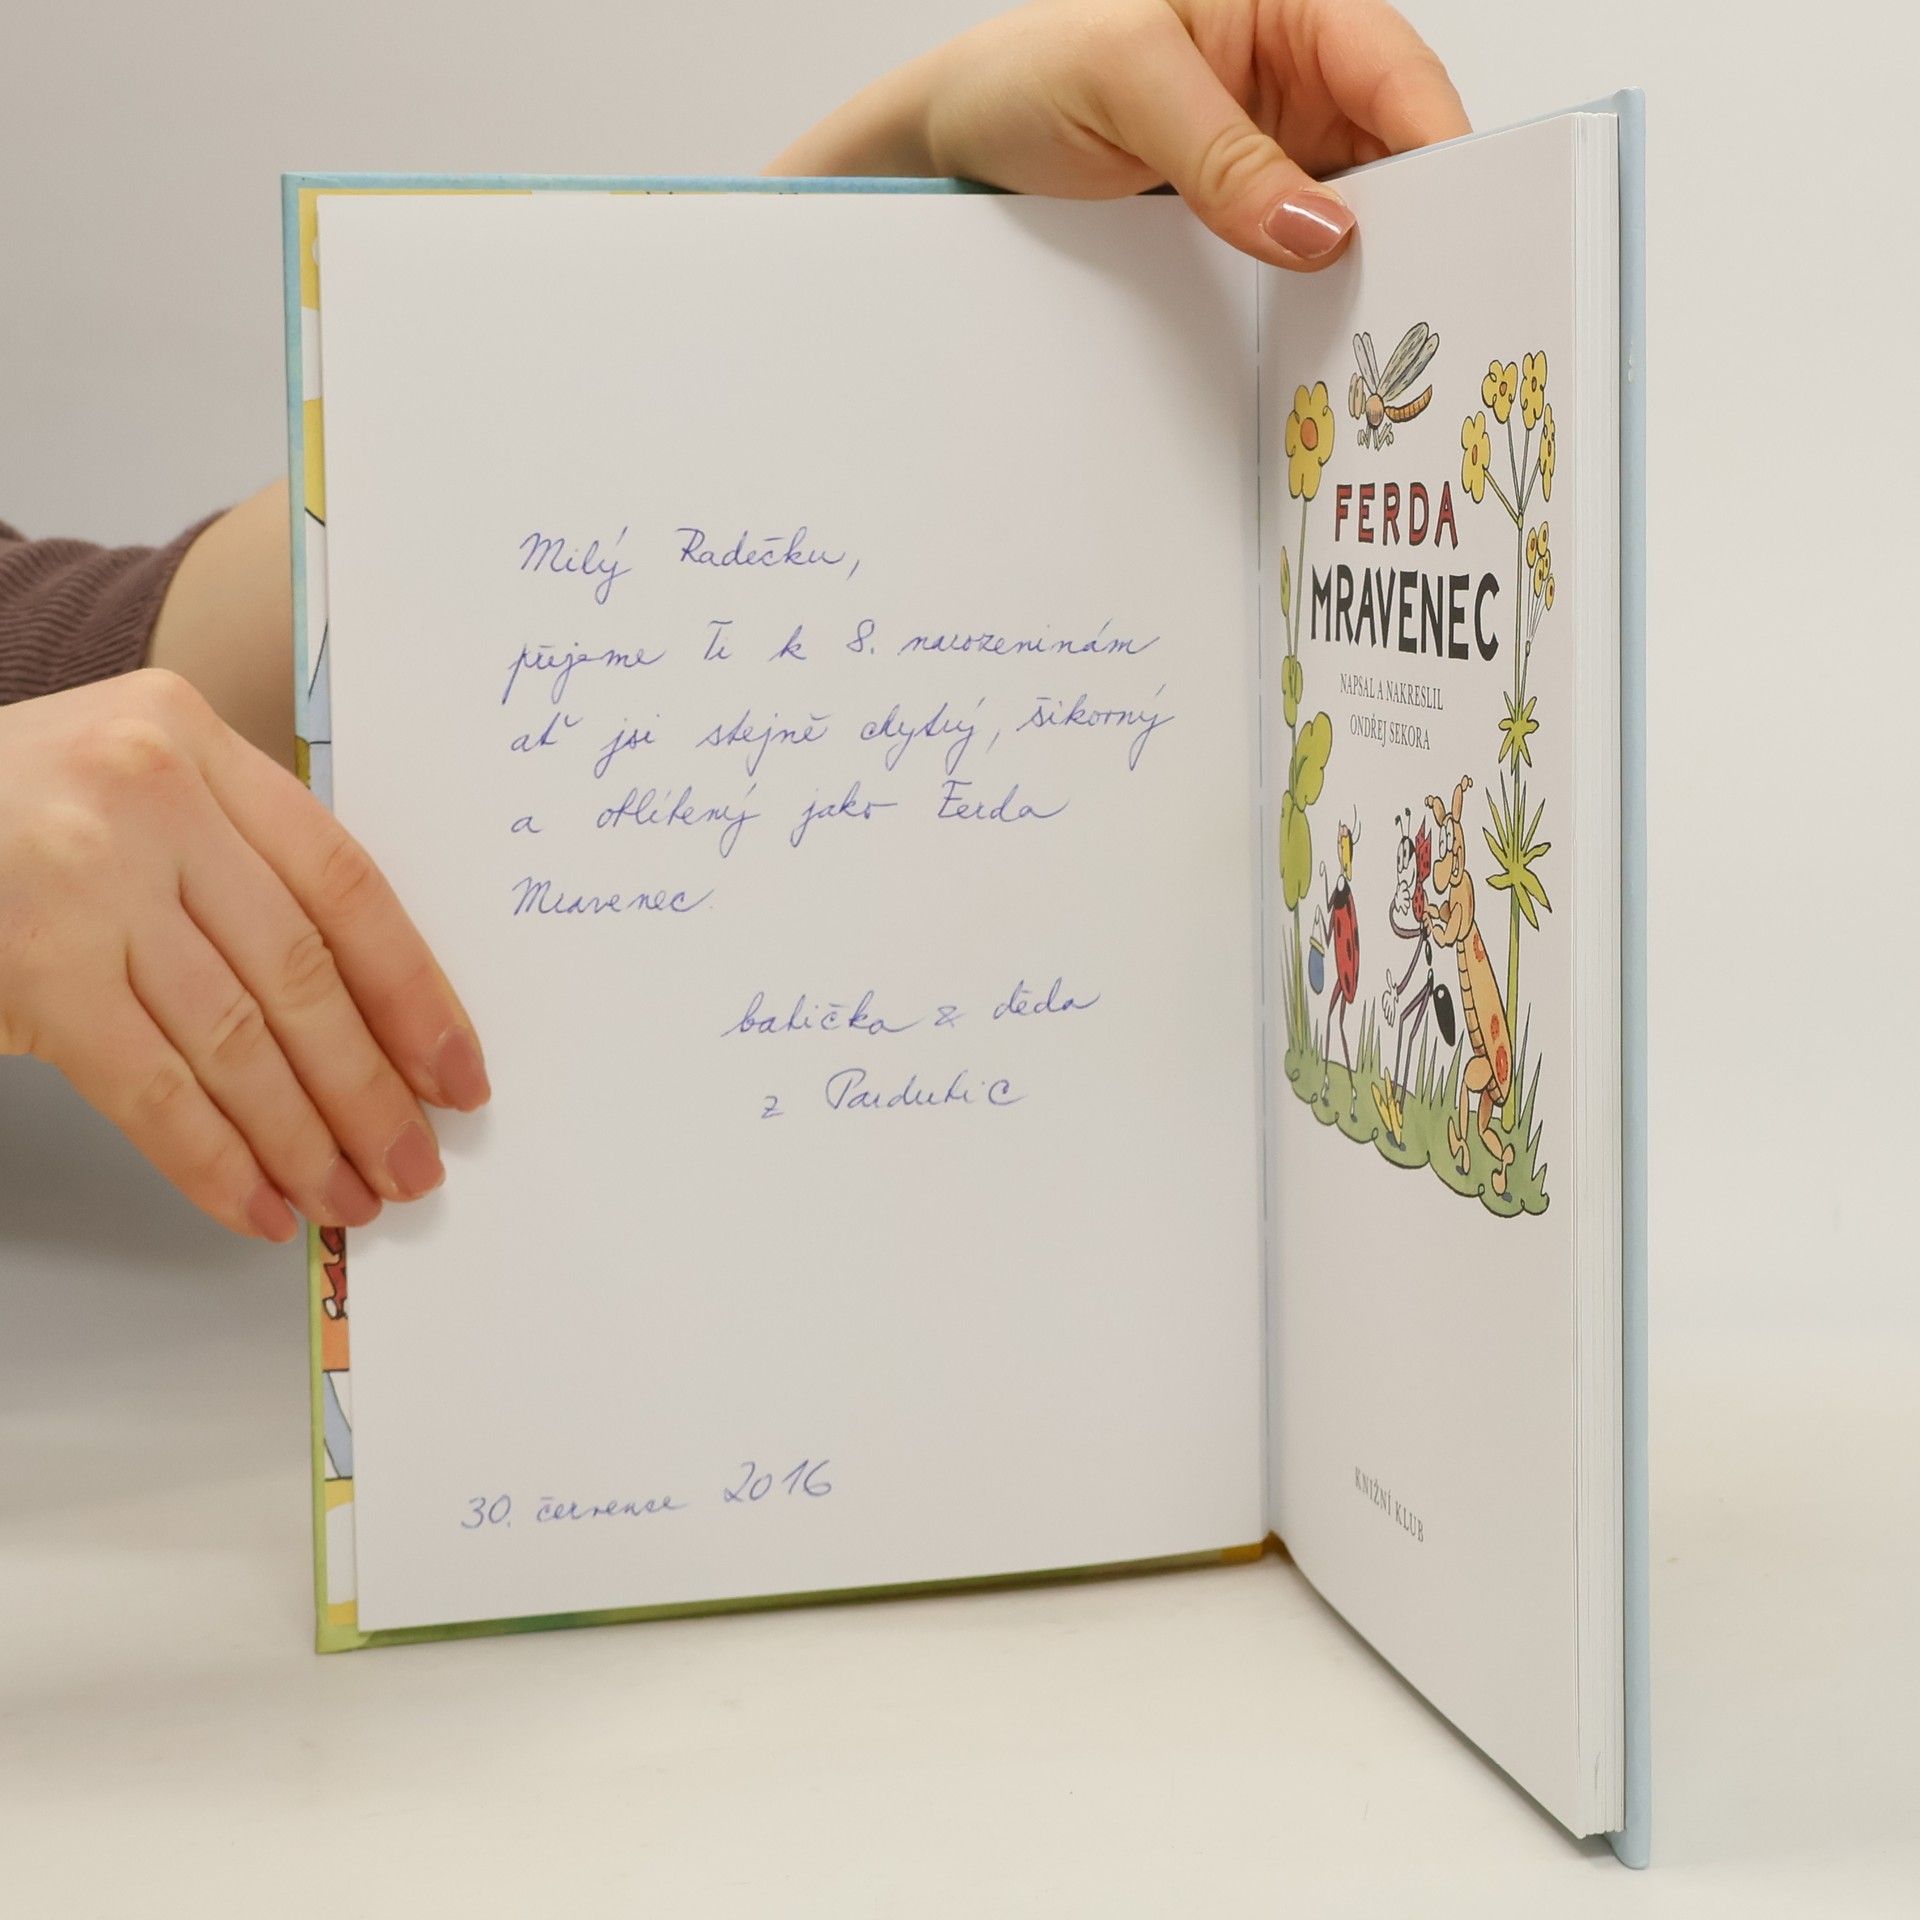 Milý Radečku,
přejeme Ti k 8. narozeninám
ať jsi stejně chytrý, šikovný
a oblíbený jako Ferda
Mravenec.
babička & děda
z Pardubic
30. července 2016
FERDA
MRAVENEC
NAPSAL A NAKRESLIL
ONDŘEJ SEKORA
KNIŽNÍ KLUB